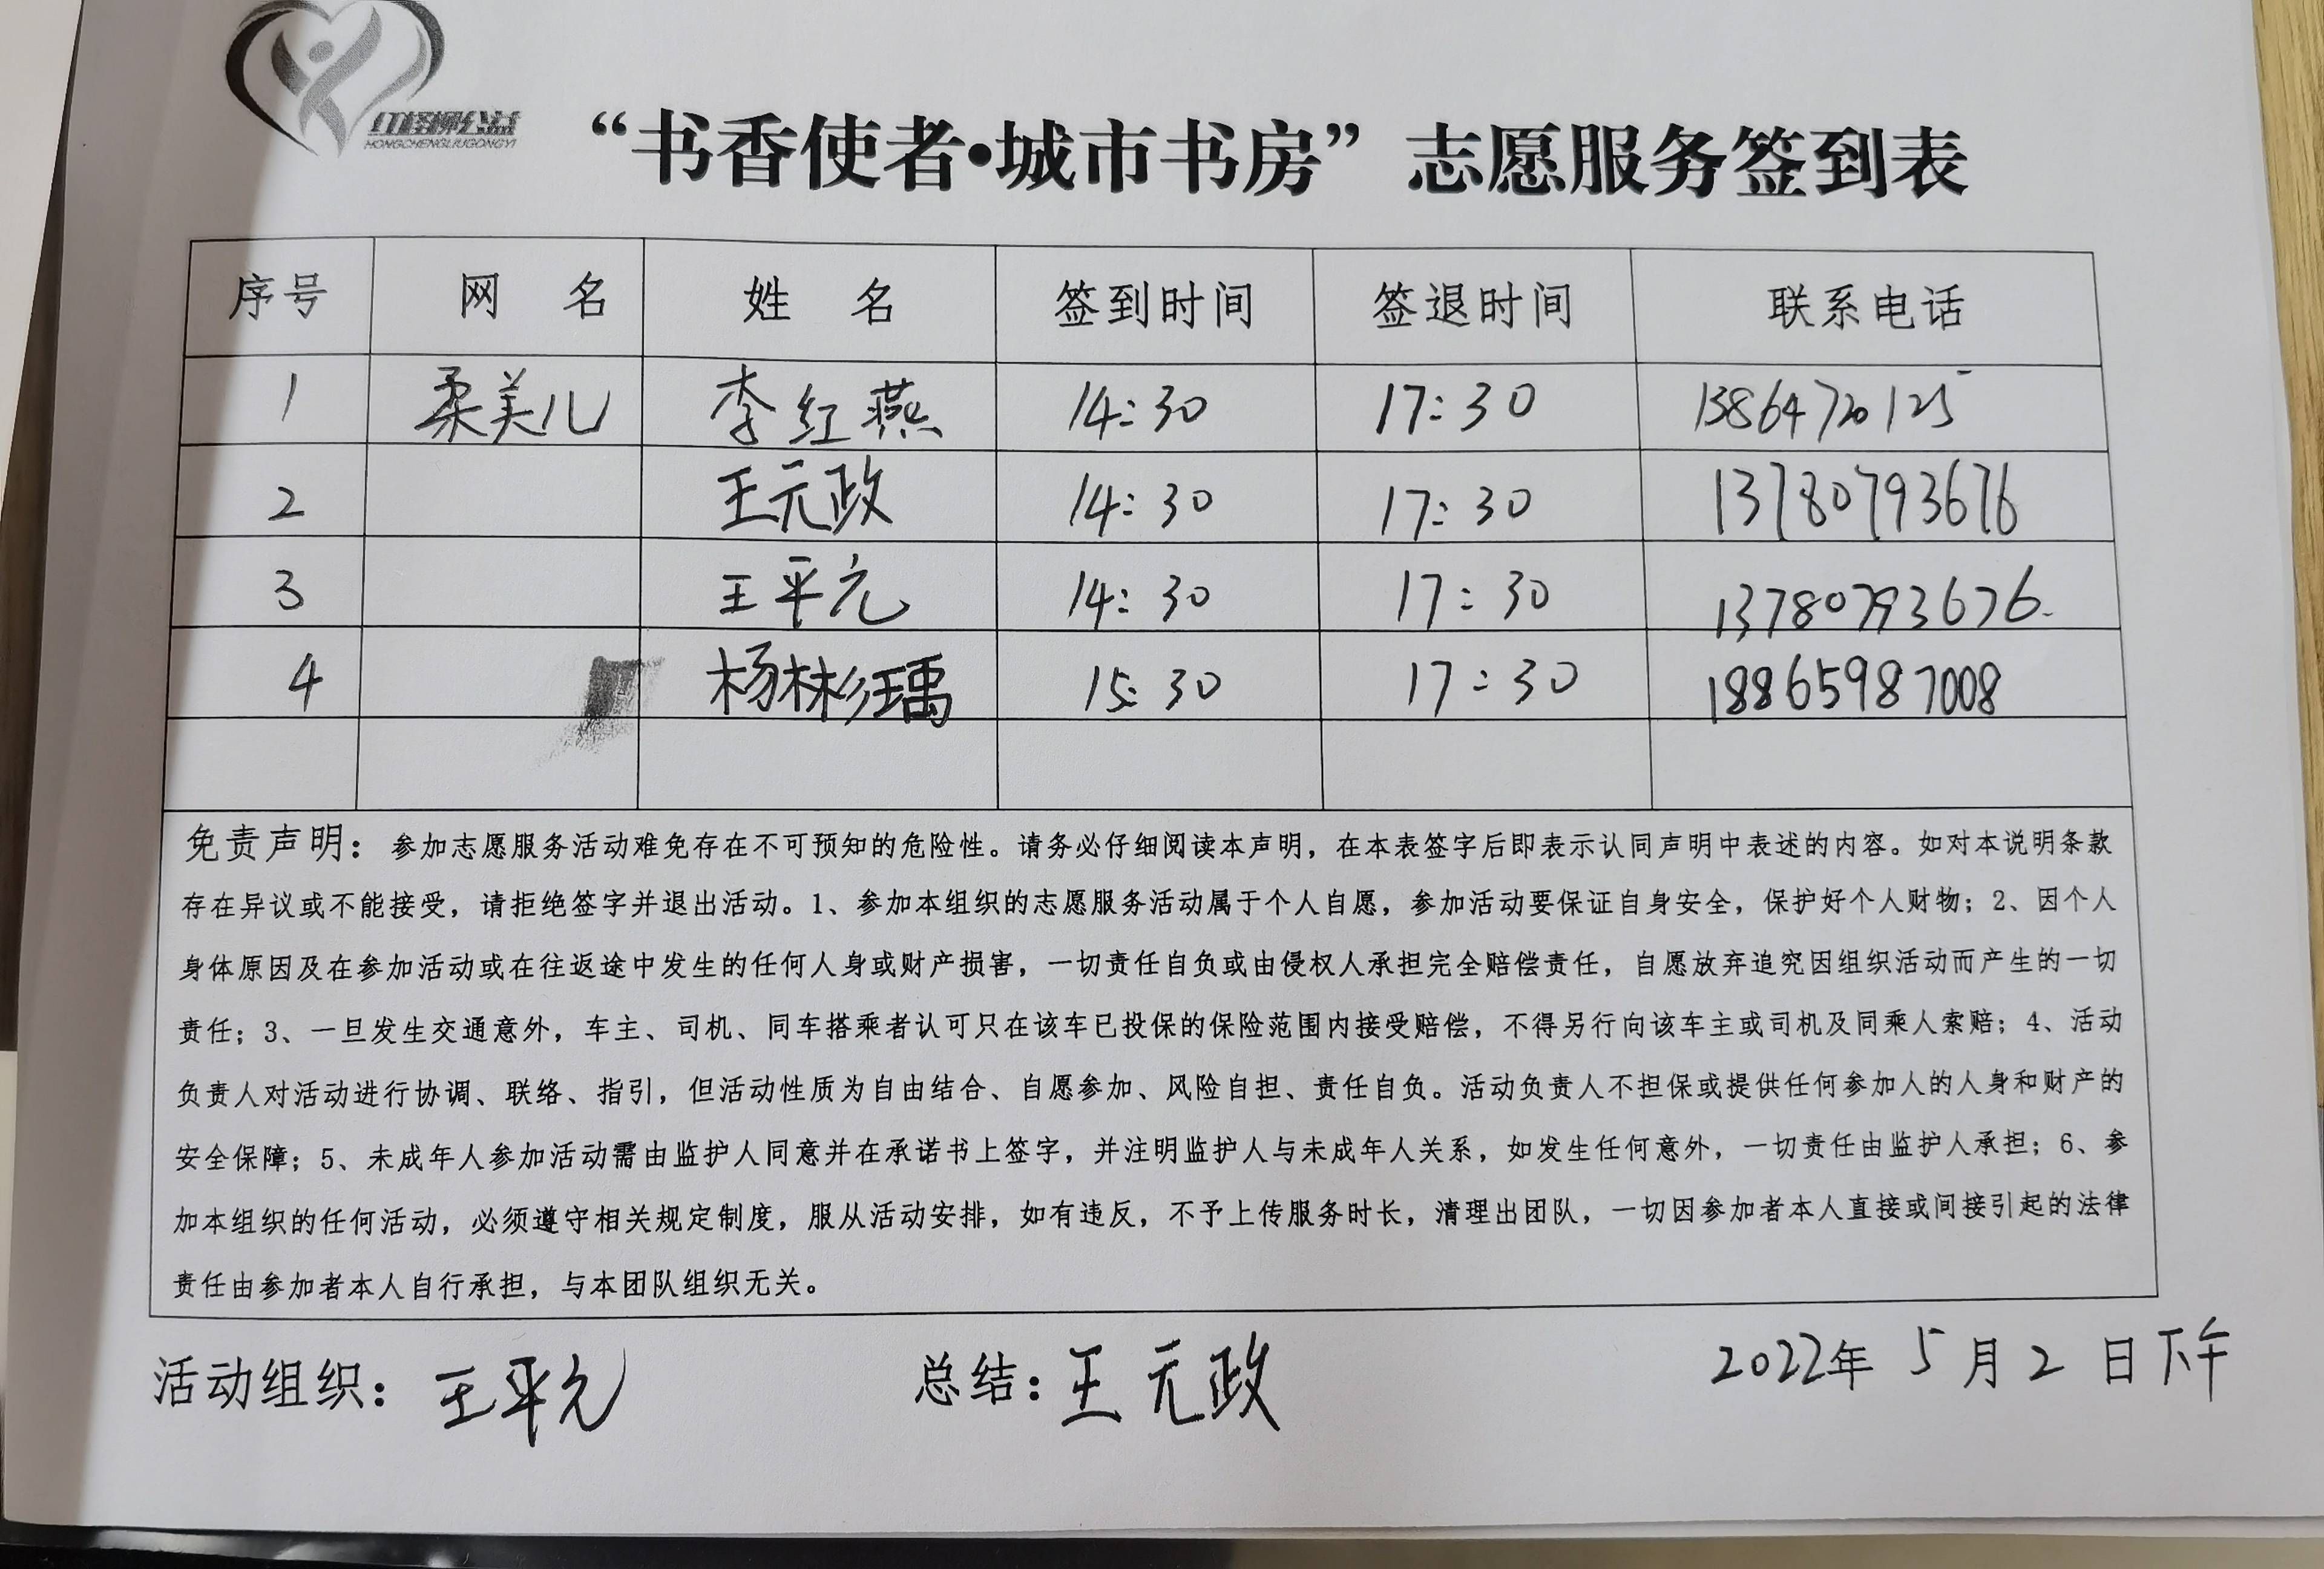 红柽柳公益
HONGCHENGLIUGONGYI
“书香使者•城市书房”志愿服务签到表
序号 网 名 姓 名 签到时间 签退时间 联系电话
1 柔美儿 李红燕 14:30 17:30 13864720125
2 王元政 14:30 17:30 13780793676
3 王平元 14:30 17:30 13780793676
4 杨彬瑀 15:30 17:30 18865987008
免责声明：参加志愿服务活动难免存在不可预知的危险性。请务必仔细阅读本声明，在本表签字后即表示认同声明中表述的内容。如对本说明条款
存在异议或不能接受，请拒绝签字并退出活动。1、参加本组织的志愿服务活动属于个人自愿，参加活动要保证自身安全，保护好个人财物；2、因个人
身体原因及在参加活动或在往返途中发生的任何人身或财产损害，一切责任自负或由侵权人承担完全赔偿责任，自愿放弃追究因组织活动而产生的一切
责任；3、一旦发生交通意外，车主、司机、同车搭乘者认可只在该车已投保的保险范围内接受赔偿，不得另行向该车主或司机及同乘人索赔；4、活动
负责人对活动进行协调、联络、指引，但活动性质为自由结合、自愿参加、风险自担、责任自负。活动负责人不担保或提供任何参加人的人身和财产的
安全保障；5、未成年人参加活动需由监护人同意并在承诺书上签字，并注明监护人与未成年人关系，如发生任何意外，一切责任由监护人承担；6、参
加本组织的任何活动，必须遵守相关规定制度，服从活动安排，如有违反，不予上传服务时长，清理出团队，一切因参加者本人直接或间接引起的法律
责任由参加者本人自行承担，与本团队组织无关。
活动组织：王平元 总结：王元政 2022年 5月2日下午